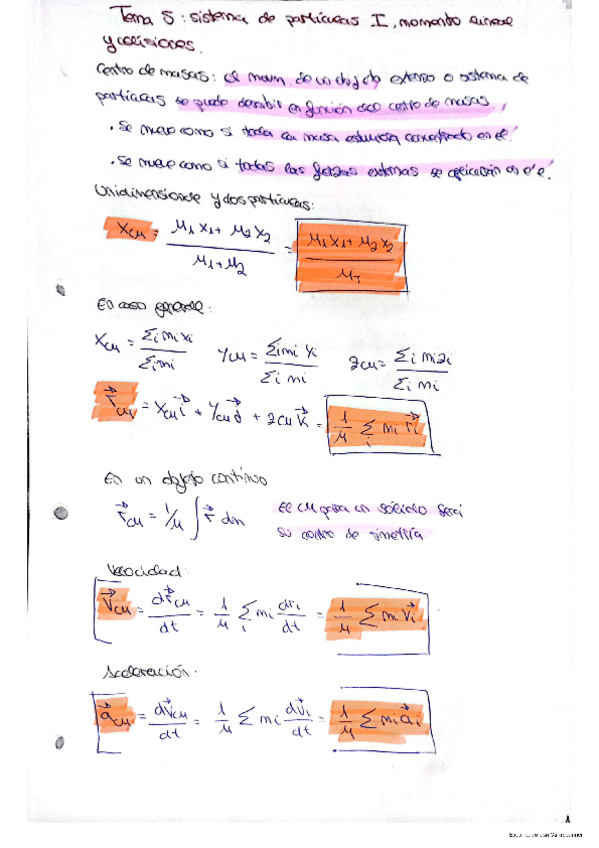 Tema 5: sistema de partículas I, momento lineal
y colisiones.
Centro de masas: el movm. de un objeto extenso o sistema de
partículas se puede describir en función del centro de masas
· Se mueve como si toda su masa estuviera concentrada en él.
· Se mueve como si todas las fuerzas externas se aplicarán en él.
Unidimensional y dos partículas:
X_CM = (M1 X1 + M2 X2) / (M1 + M2) = (M1 X1 + M2 X2) / M_T
En caso general:
X_CM = Σi mi xi / Σi mi   Y_CM = Σi mi yi / Σi mi   Z_CM = Σi mi zi / Σi mi
r⃗_CM = X_CM i⃗ + Y_CM j⃗ + Z_CM k⃗ = 1/M Σi mi r⃗i
En un objeto continuo
r⃗_CM = 1/M ∫ r⃗ dm   El CM para un sólido será
su centro de simetría
Velocidad
V⃗_CM = dr⃗_CM/dt = 1/M Σi mi dri/dt = 1/M Σ mi V⃗i
Aceleración:
a⃗_CM = dv⃗_CM/dt = 1/M Σ mi dv⃗i/dt = 1/M Σ mi a⃗i
1